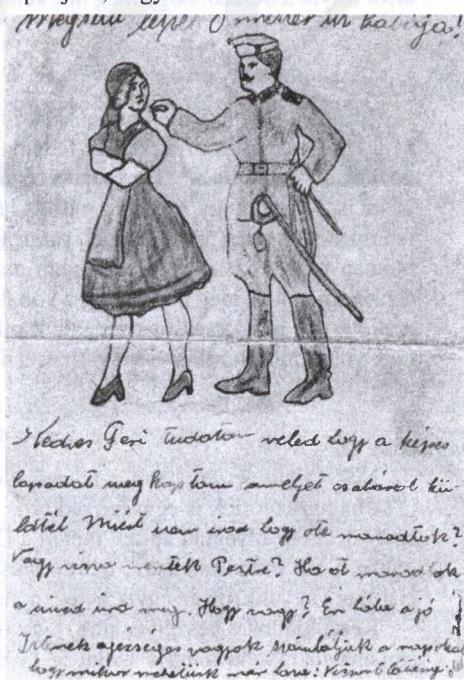 Kedves Feri tudatom veled hogy a képes
lapodat meg kaptam amelyet csabárol kü-
ldtél Miért nem irod hogy ott maradtok?
Vagy vissza mentek Pestre? Ha ot maradtok
a cimed ird meg. Hogy vagy? Én hála a jó
Istenek egészséges vagyok számláljuk a napokat
hogy mikor mehetünk már